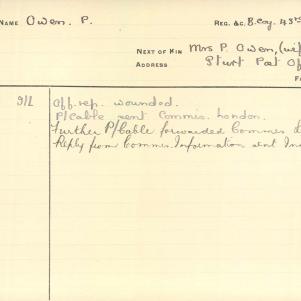 NAME Owen. P. REG. &C. B. Coy. 43rd
NEXT OF KIN Mrs P. Owen, (wife
ADDRESS Sturt Post Of
9/2 Off. rep. wounded.
P/Cable sent Commis. London.
Further P/Cable forwarded Commis
Reply from Commis. Information sent